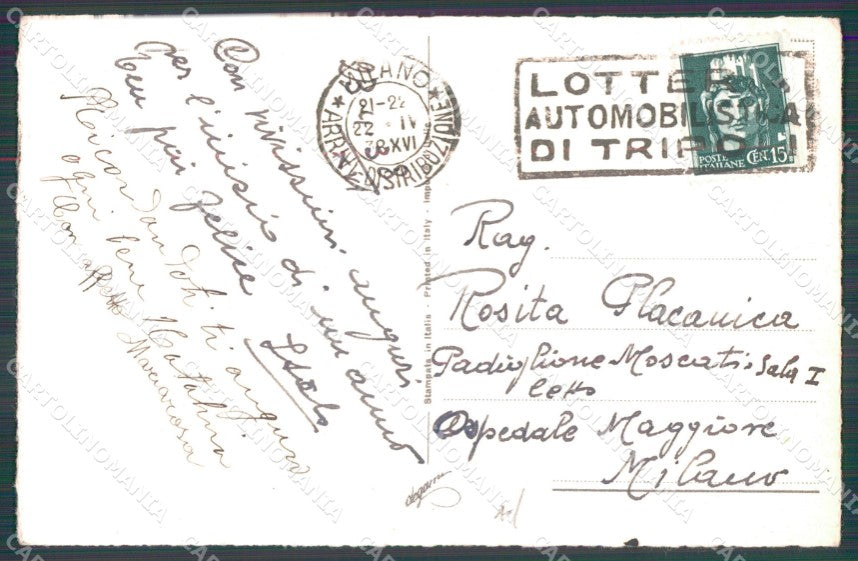 Con vivissimi auguri
per l'inizio di un anno
ben più felice
Italo
Ricordandoti ti auguro
ogni bene Natalina
Con affetto Mariarosa
MILANO
21-22
22 · IV
38 XVI
ARRIVI E DISTRIBUZIONE
LOTTERIA
AUTOMOBILISTICA
DI TRIPOLI
POSTE ITALIANE CENT. 15
Stampata in Italia - Printed in Italy
Rag.
Rosita Placanica
Padiglione Moscati · Sala I
letto
Ospedale Maggiore
Milano
CARTOLINOMANIA